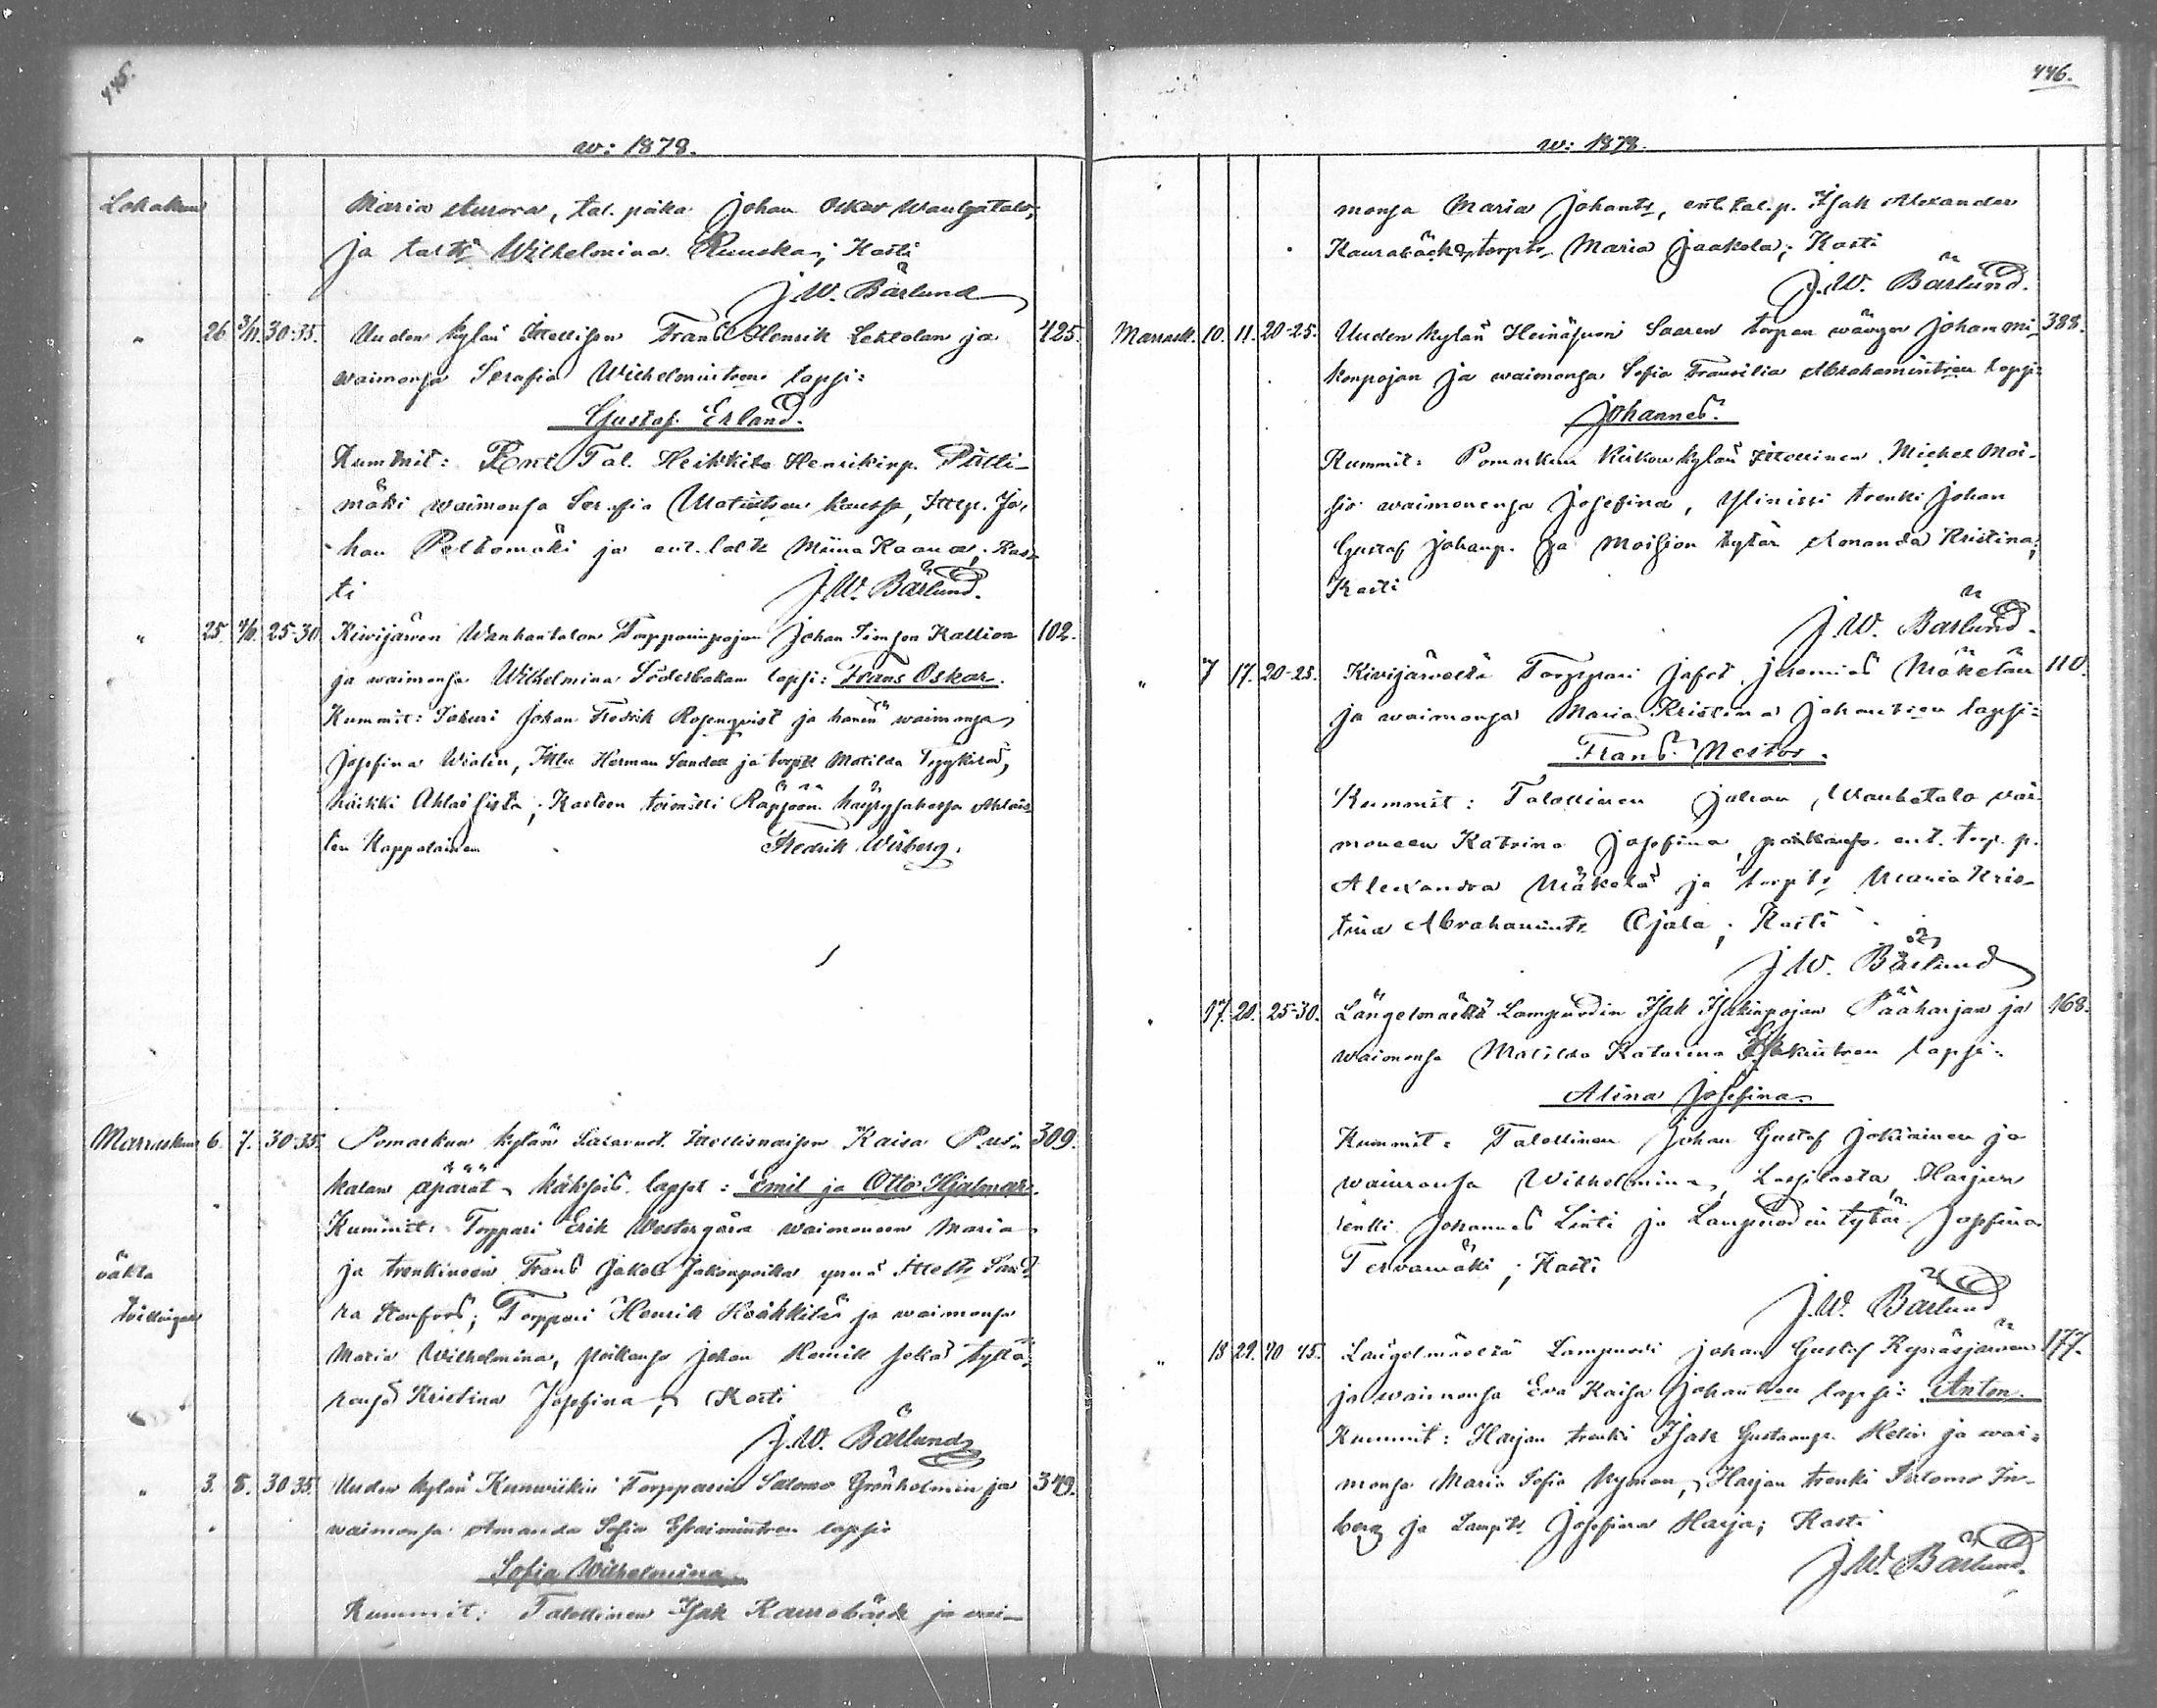 445.
w: 1878.
Lokakuu Maria Aurora, tal. poika Johan Oskar Wanhatalo,
ja taltr Wilhelmina Ruuska; Kasti
J. W. Bärlund
" 26 3/11. 30-35. Uuden kylän Ittellisen Frans Henrik Lehtolan ja 425.
waimonsa Serafia Wilhelmintren lapsi:
Gustaf Erland.
Kummit: Ent. Tal. Heikkila Henrikinp.
mäki waimonsa Serafia kanssa, Ittep. Jo-
han Peltomäki ja ent. Miina Kaas-
ti J. W. Bärlund.
" 25. 4/11. 25-30 Kiwijärwen Wanhantalon Torpparinpojan Johan Simson Kallion 102.
ja waimonsa Wilhelmina Söderbakan lapsi: Frans Oskar.
Kummit: Johan Fredrik Rosenqvist ja hänen waimonsa
Josefina Johan Herman Sandell ja torptr Matilda
kaikki Ahlaisista; Kasteen toimitti Räpsöön Ahlais-
ten Kappalainen Fredrik Wirberg.
Marraskuu 6. 7. 30-35. Pomarkun kylän Ittellisnaisen Kaisa Pusi- 309.
kalan äpärät, kaksois. lapset: Emil ja Otto Hjalmar.
Kummit: Torppari Erik Westergård waimoneen Maria
äkta
twillingar
ja trenkineen Frans Jakob Jakonpoika ynnä Ittelltr Sand-
ra Torppari Henrik Heikkilä ja waimonsa
Maria Wilhelmina, poikansa Johan Henrik sekä tyttä-
rensä Kristina Josefina; Kasti
J. W. Bärlund
" 3. 8. 30-35. Uuden kylän Torpparin Salomo Grönholmin ja 349.
waimonsa Amanda Sofia Efraimintren lapsi
Sofia Wilhelmina
Kummit: Talollinen Isak Kaurabäck ja wai-
446.
w: 1878.
monsa Maria Johantr, ent. tal. p. Isak Alexander
Kaurabäck, torptr Maria Jaakola; Kasti
J. W. Bärlund.
Marrask. 10. 11. 20-25. Uuden kylän Heinäsuon Saaren torpan wäwyn Johan 388.
konpojan ja waimonsa Sofia Fransilia Abrahamintren lapsi
Johannes.
Kummit: Pomarkun kylän Ittellinen Michel Moi-
sio waimonensa Josefina, trenki Johan
Gustaf Johanp. ja Moision tytär Amanda Kristina;
Kasti
J. W. Bärlund.
" 7 17. 20-25. Kiwijärveltä Torppari Jafet Jeremias Mäkelän 110.
ja waimonsa Maria Kristina Johantren lapsi:
Frans Nestor.
Kummit: Talollinen Johan Wanhatalo wai-
moneen Katrina Josefina, ent. torp. p.
Alexandra Mäkelä ja torptr Maria Kris-
tina Abrahamintr Ojala; Kasti
J. W. Bärlund
" 17. 20. 25-30. Längelmäeltä Lampuodin Isak Isakinpojan Pääharjan ja 168.
waimonsa Matilda Katarina Isakintren lapsi:
Alina Josefina
Kummit: Talollinen Johan Gustaf Jokiainen ja
waimonsa Wilhelmina, Lassilasta, Harjun
renki Johannes Linti ja Lampuodin tytär Josefina
Tervamäki; Kasti
J. W. Bärlund
" 18 29. 40-45. Längelmäeltä Lampuodi Johan Gustaf 177.
ja waimonsa Eva Kaisa Johantren lapsi: Anton
Kummit: Harjan trenki Isak Gustaunp. Helin ja wai-
monsa Maria Sofia Nyman, Harjan trenki Salomo In-
berg ja Josefina Harja; Kasti
J. W. Bärlund.